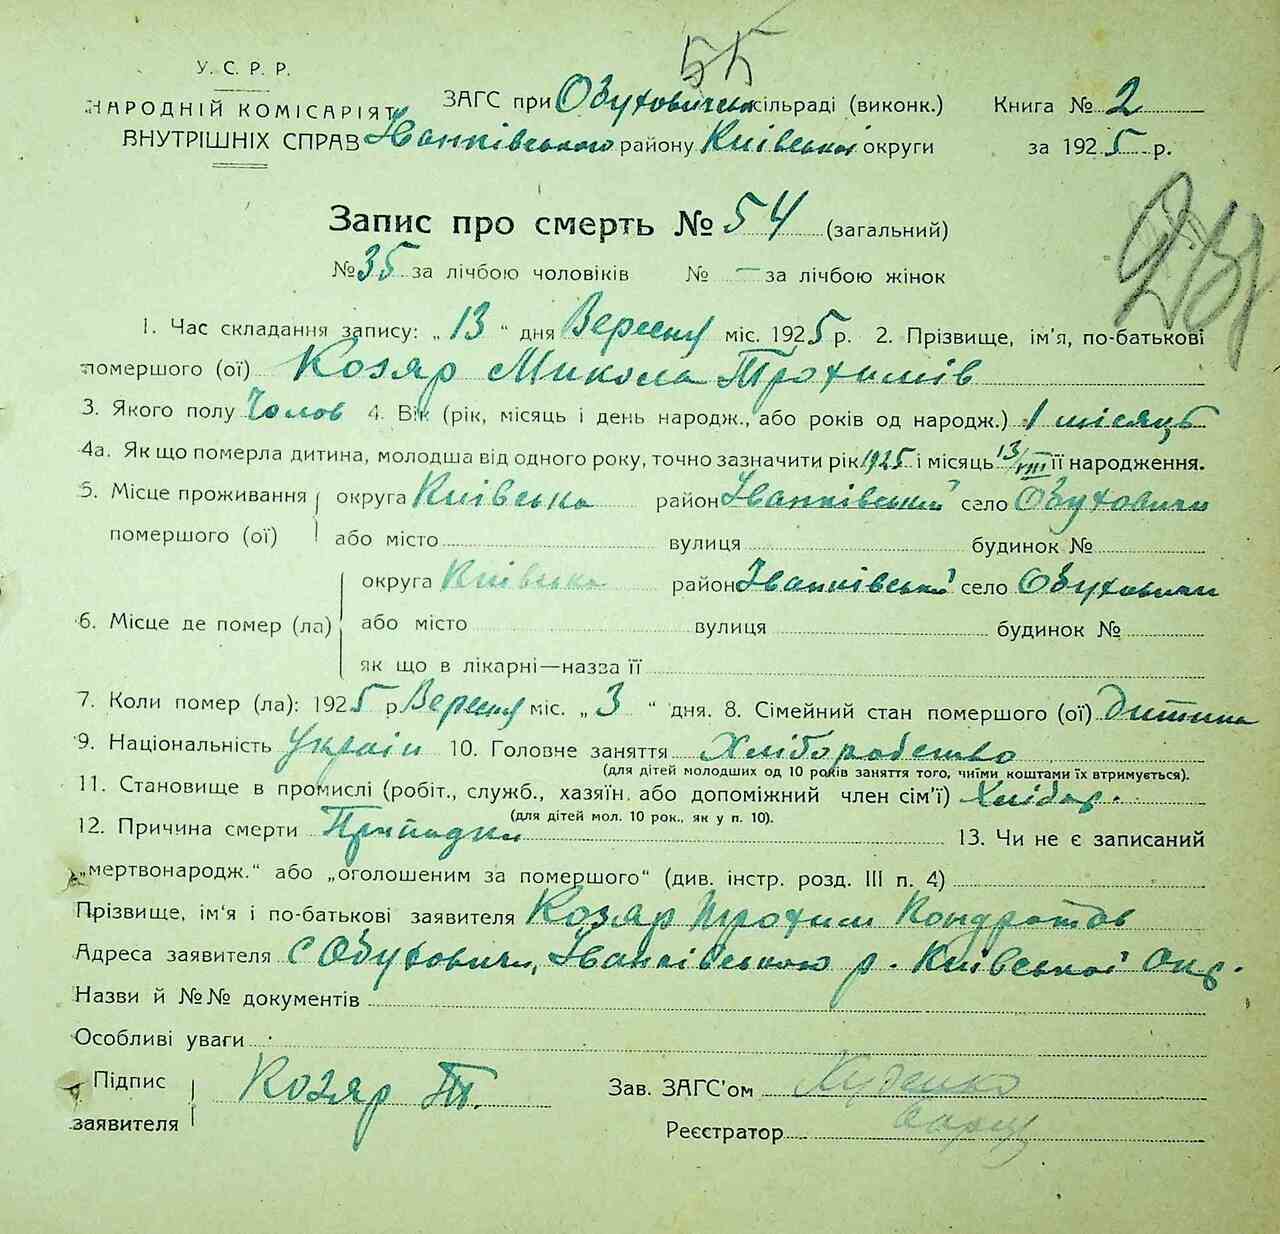 55
У. С. Р. Р.
НАРОДНІЙ КОМІСАРІЯТ
ВНУТРІШНІХ СПРАВ
ЗАГС при Обуховичськ сільраді (виконк.) Книга № 2
Іванківського району Київської округи за 1925 р.
Запис про смерть № 54 (загальний)
№ 35 за лічбою чоловіків № — за лічбою жінок
1. Час складання запису: „13“ дня Вересня міс. 1925 р. 2. Прізвище, ім'я, по-батькові
помершого (ої) Козяр Микола Трохимів
3. Якого полу Чолов 4. Вік (рік, місяць і день народж., або років од народж.) 1 місяць
4а. Як що померла дитина, молодша від одного року, точно зазначити рік 1925 і місяць 13/VIII її народження.
5. Місце проживання округа Київська район Іванківський село Обуховичи
помершого (ої) або місто вулиця будинок №
округа Київська район Іванківський село Обуховичи
6. Місце де помер (ла) або місто вулиця будинок №
як що в лікарні—назва її
7. Коли помер (ла): 1925 р Вересня міс. „3“ дня. 8. Сімейний стан помершого (ої) Дитина
9. Національність Україн 10. Головне заняття Хліборобство
(для дітей молодших од 10 років заняття того, чиїми коштами їх втримується).
11. Становище в промислі (робіт., служб., хазяїн або допоміжний член сім'ї) Хлібор.
(для дітей мол. 10 рок., як у п. 10).
12. Причина смерти Припадки 13. Чи не є записаний
„мертвонародж.“ або „оголошеним за помершого“ (див. інстр. розд. III п. 4)
Прізвище, ім'я і по-батькові заявителя Козяр Трохим Кондратов
Адреса заявителя с Обуховичи, Іванківського р. Київської Окр.
Назви й №№ документів
Особливі уваги
Підпис заявителя Козяр Т.
Зав. ЗАГС'ом
Реєстратор